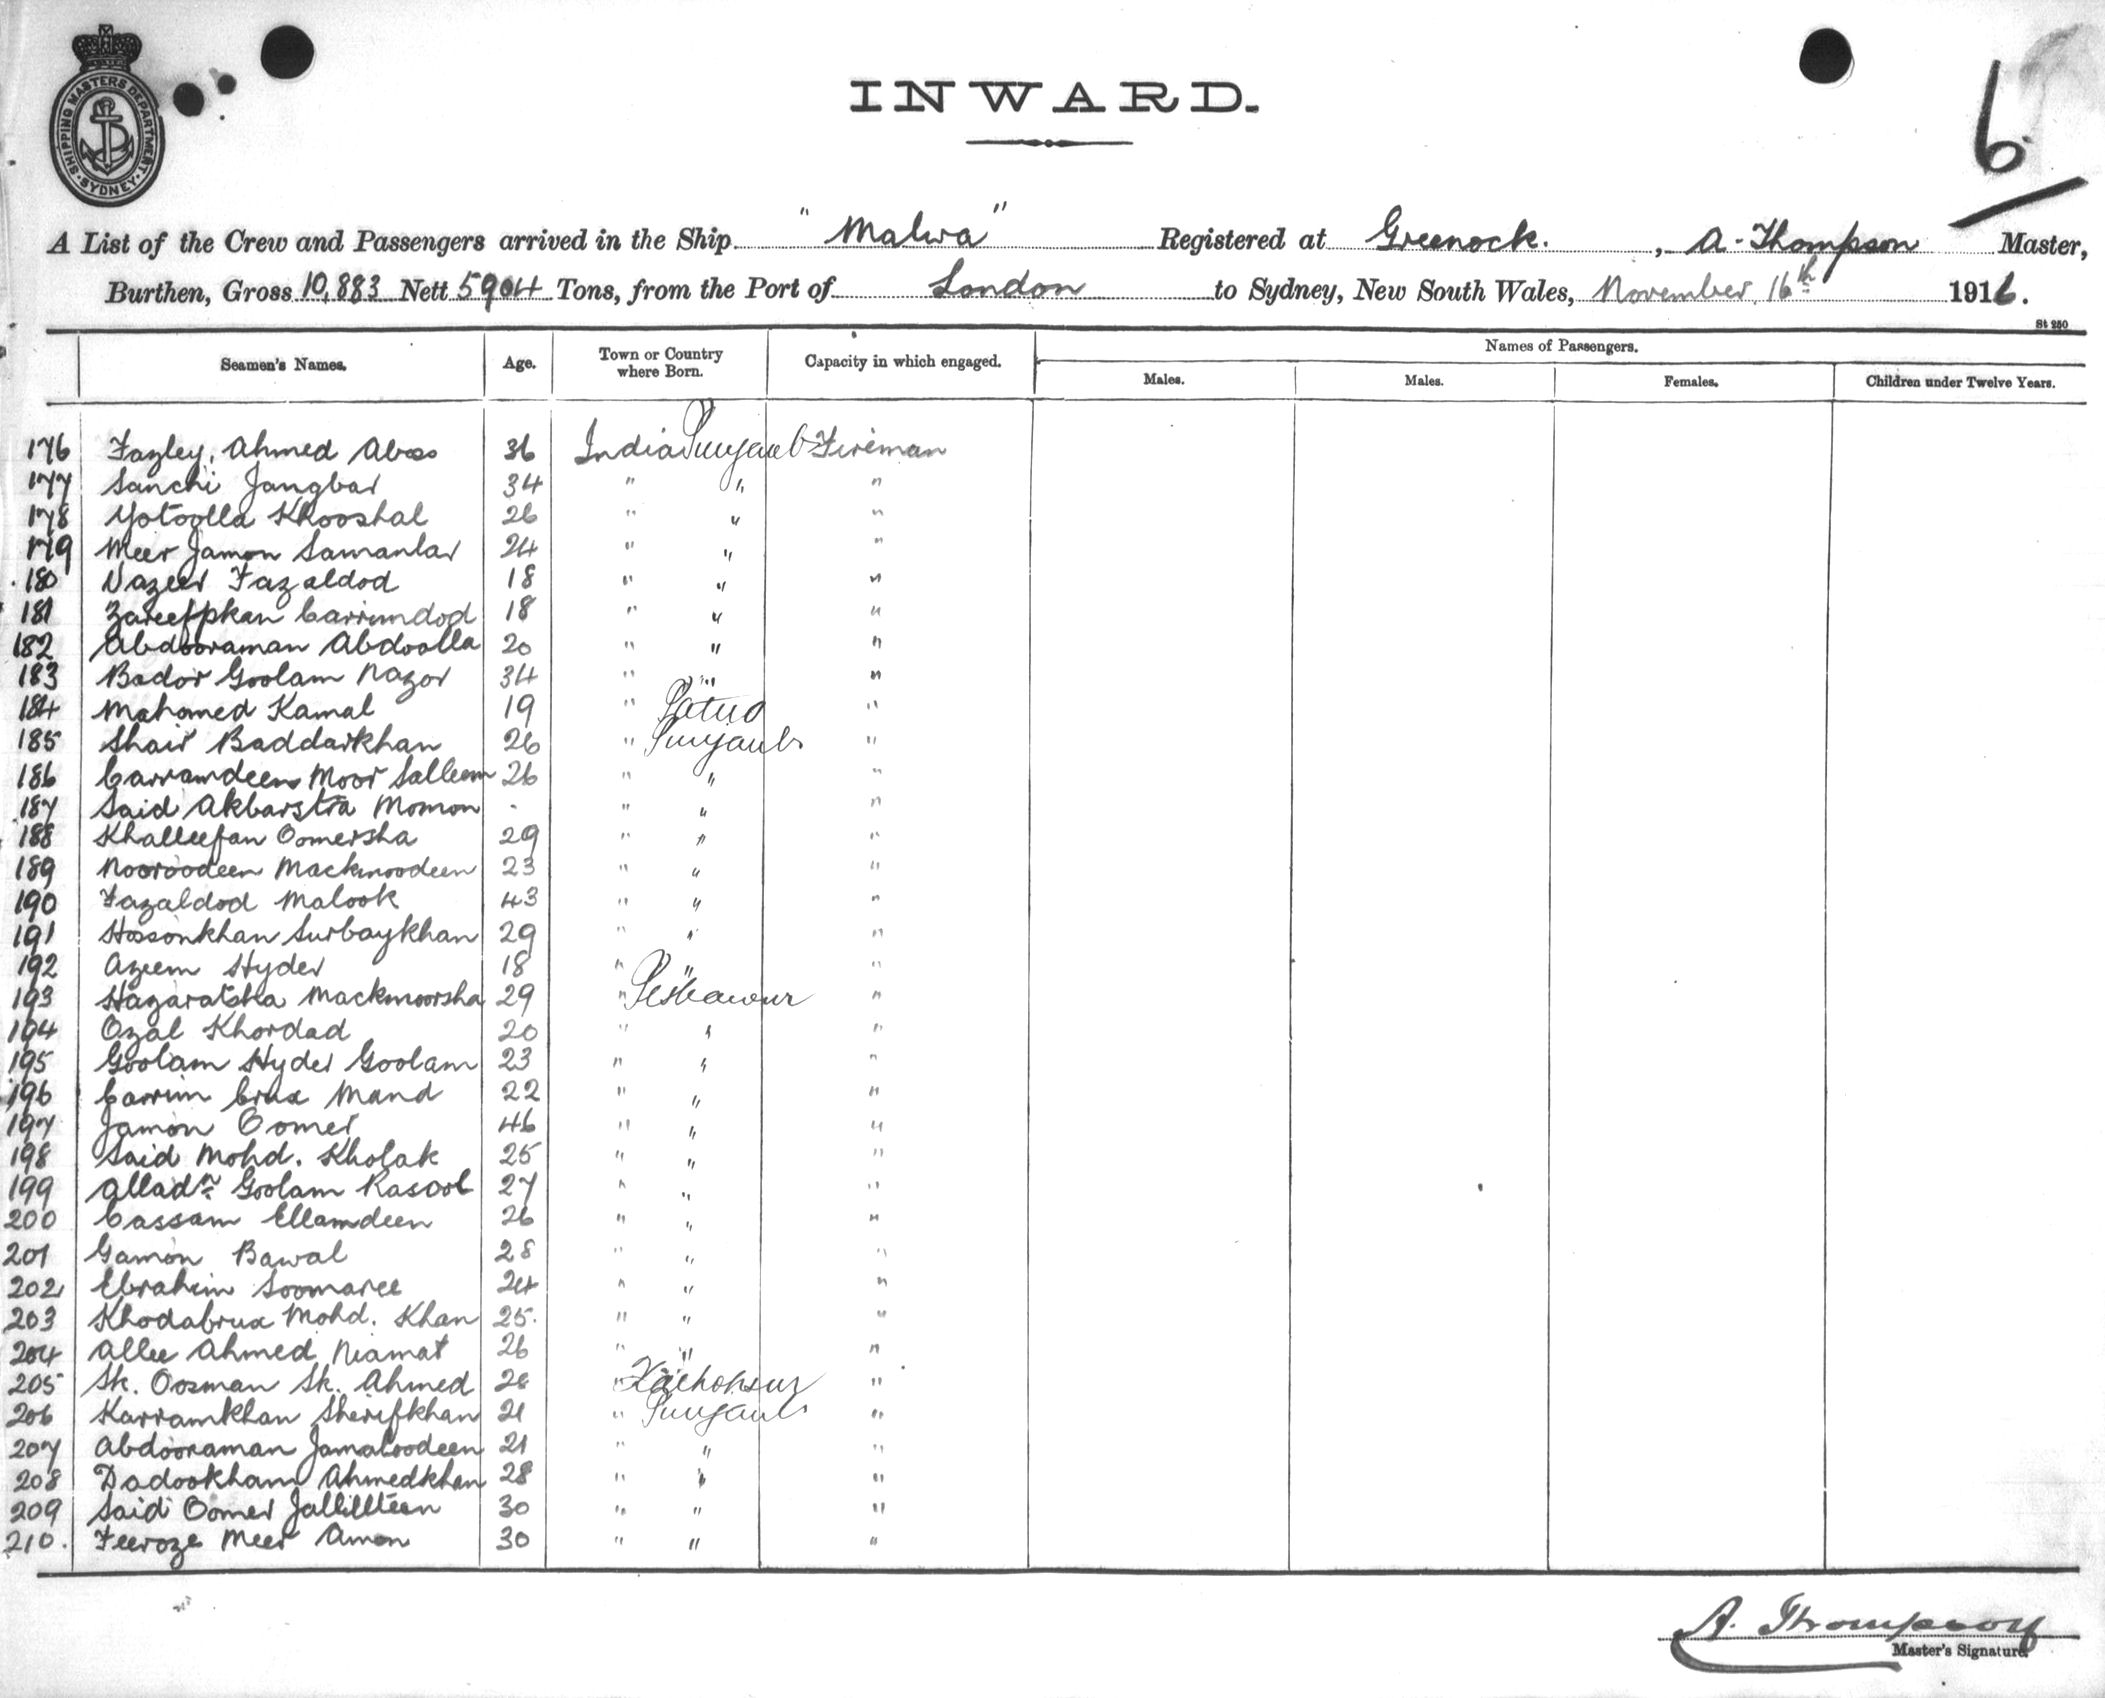 SHIPPING MASTERS DEPARTMENT SYDNEY
INWARD.
6
A List of the Crew and Passengers arrived in the Ship "Malwa" Registered at Greenock. , A. Thompson Master,
Burthen, Gross 10,883 Nett 5904 Tons, from the Port of London to Sydney, New South Wales, November 16th 1916.
St 250
Seamen's Names. Age. Town or Country where Born. Capacity in which engaged. Names of Passengers.
Males. Males. Females. Children under Twelve Years.
176 Fazley, Ahmed Abas 36 India Punjaub Fireman
177 Sanchi Jangbar 34 " " "
178 Yotoolla Khooshal 26 " " "
179 Meer Jamon Samanlar 24 " " "
180 Nazeer Fazaldod 18 " " "
181 Zareefpkan Carrimdod 18 " " "
182 Abdooraman Abdoolla 20 " " "
183 Bador Goolam Nazor 34 " " "
184 Mahomed Kamal 19 " "
185 Shair Baddarkhan 26 " Punjaub "
186 Carramdeen Moor Salleem 26 " " "
187 Said Akbarstra Momon - " " "
188 Khalleefan Oomersha 29 " " "
189 Nooroodeen Mackmoodeen 23 " " "
190 Fazaldod Malook 43 " " "
191 Hossonkhan Surbaykhan 29 " " "
192 Azeem Hyder 18 " " "
193 Hazaratsha Mackmoorsha 29 " Peshawur "
194 Ozal Khordad 20 " " "
195 Goolam Hyder Goolam 23 " " "
196 Carrim Crux Mand 22 " " "
197 Jamon Oomer 46 " " "
198 Said Mohd. Kholak 25 " " "
199 Alladn Goolam Rasool 27 " " "
200 Cassam Ellamdeen 26 " " "
201 Gamon Bawal 28 " " "
202 Ebrahim Soomaree 24 " " "
203 Khodabrux Mohd. Khan 25. " " "
204 Allee Ahmed Niamat 26 " " "
205 Sk. Oosman Sk. Ahmed 28 " "
206 Karramkhan Sherifkhan 21 " Punjaub "
207 Abdooraman Jamaloodeen 21 " " "
208 Dadookham Ahmedkhan 28 " " "
209 Said Oomer Jallillteen 30 " " "
210. Feeroze Meer Amon 30 " " "
A. Thompson
Master's Signature